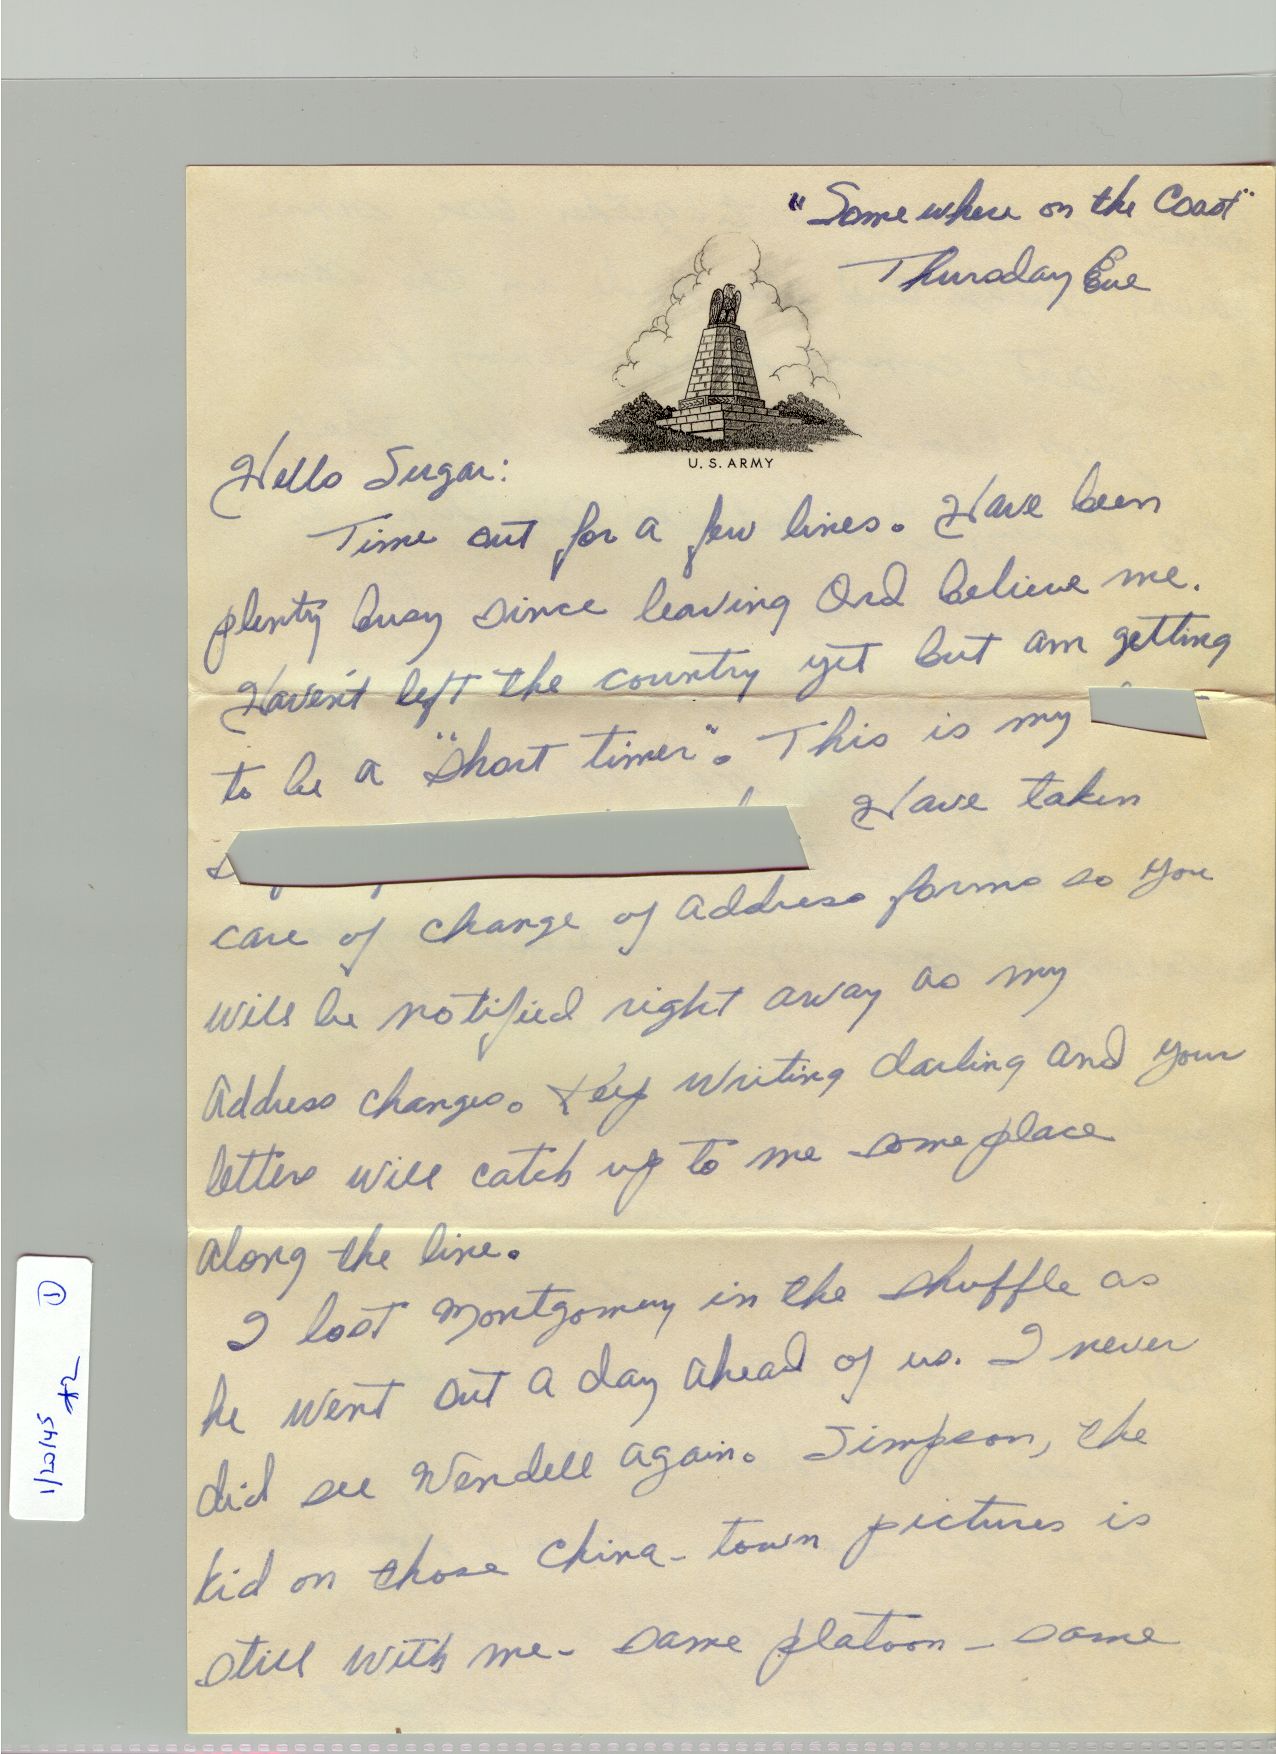 "Somewhere on the Coast"
Thursday Eve
U. S. ARMY
Hello Sugar:
Time out for a few lines. Have been
plenty busy since leaving Ord believe me.
Haven't left the country yet but am getting
to be a "short timer". This is my
Have taken
care of change of address forms so you
will be notified right away as my
address changes. Keep writing darling and your
letters will catch up to me someplace
along the line.
I lost Montgomery in the shuffle as
he went out a day ahead of us. I never
did see Wendell again. Simpson, the
kid on those China-town pictures is
still with me - same platoon - same
1/20/45 #2 1